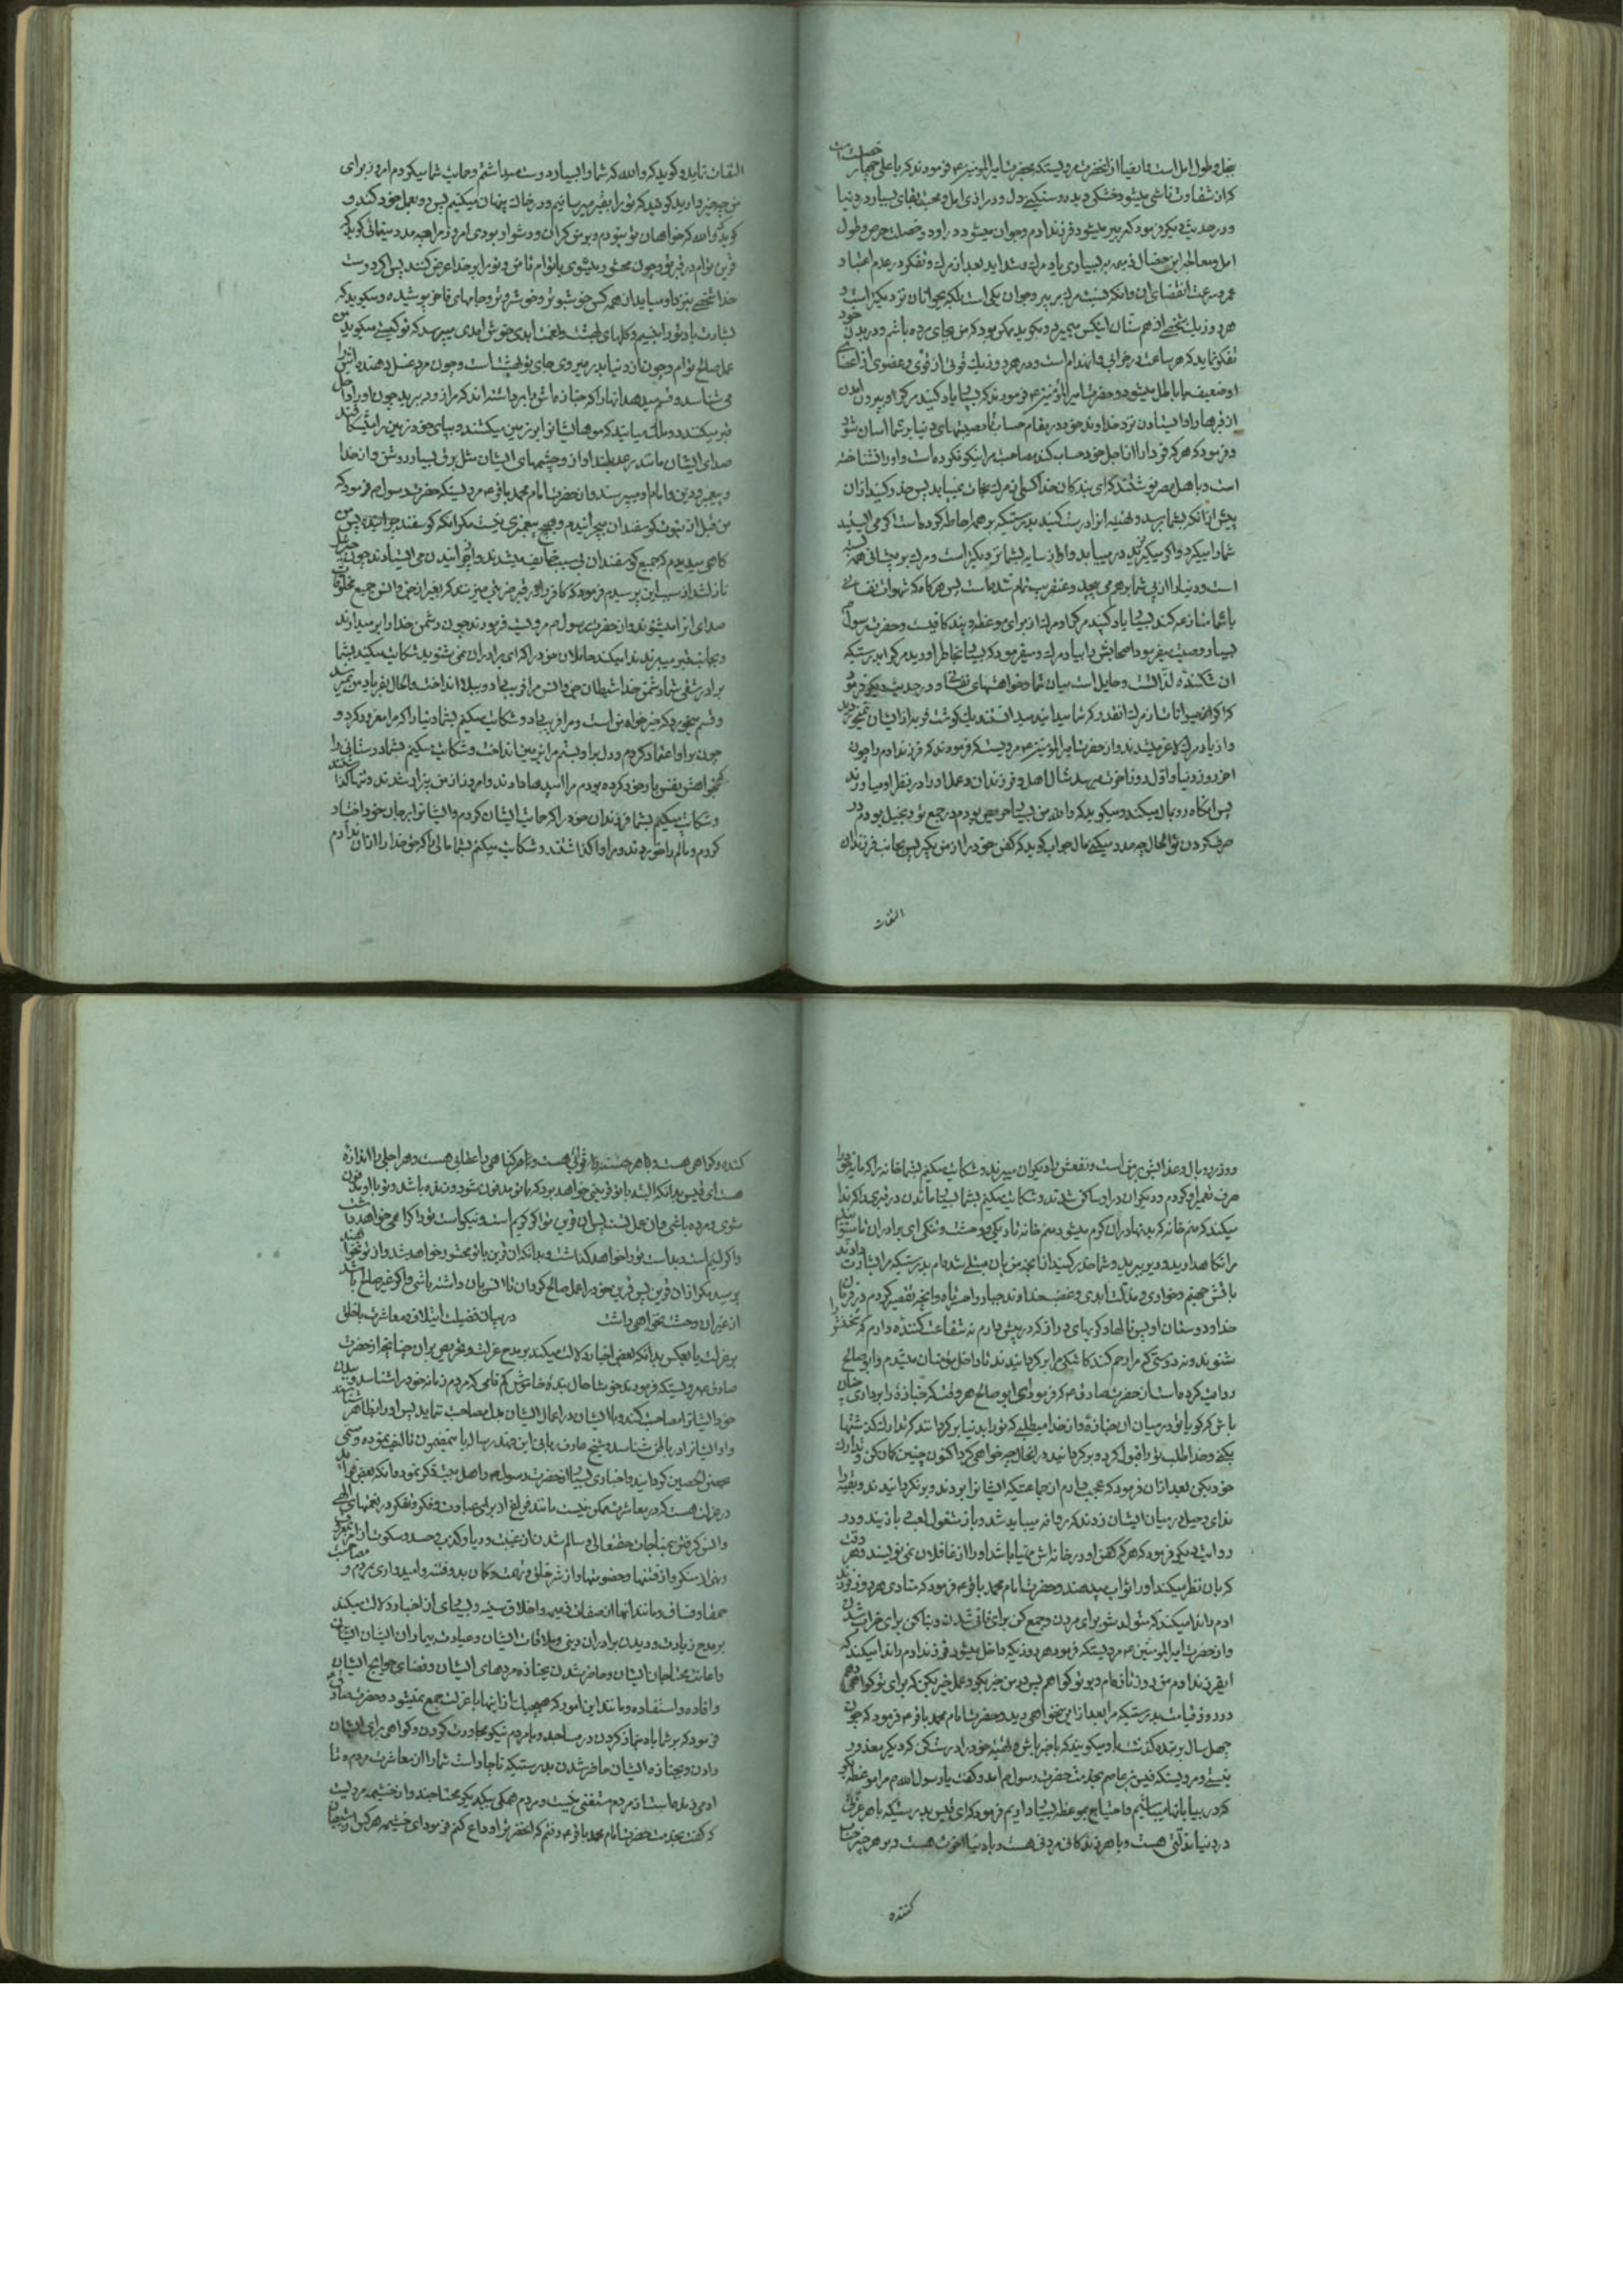 بخل و طول امل است و ایضا از انحضرت مرویستکه بحضرت امیرالمومنین ع فرمودند که یا علی چهار خصلت است
که از شقاوت ناشی میشود خشکی دیده و سنکینی دل و درازی امل و محبت بقای بسیار در دنیا
و در حدیث دیکر فرمود که پیر میشود فرزند ادم و جوان میشود در او دو خصلت حرص و طول
امل و معالجه این خصال ذمیمه بر بسیاری یاد مرک و شداید بعد از مرک و تفکر در عدم اعتبار
عمر و سرعت انقضای ان و انکه نسبت مرک بر پیر و جوان یکی است بلکه بجوانان نزدیکتر است و
هر روز یک شخصی از هم سنان اینکس میمیرد و بکوید ممکن بود که من بجای مرده باشم و در بدن خود
تفکر نماید که هر ساعت در خرابی و انهدام است و در هر روز یک قوتی از قوی و عضوی از اعضای
او ضعیف یا باطل میشود و حضرت امیرالمؤمنین ع فرمودند که بسیار یاد کنید مرک را و بیرون امدن
از قبرها را و ایستادن نزد خداوند خود در مقام حساب تا مصیبتهای دنیا بر شما اسان شود
و فرمود که هر که فردا را از اجل خود حساب کند مصاحبت مرک نیکو نکرده است و او را نشناخته
است و باهل مصر نوشتند که ای بندکان خدا کسی از مرک نجات نمییابد پس حذر کنید از ان
پیش از انکه بشما برسد و تهیه انرا درست کنید بدرستیکه بر همه احاطه کرده است اکر می ایستید
شما را میکیرد و اکر میکریزید در مییابد و او از سایه بشما نزدیکتر است و مرک بر پیشانی همه بسته
است و دنیا از پی شما بر هم می پیچد و عنقریب تمام شده است پس هر کاه که شهوات نفسانی
با شما منازعه کند بسیار یاد کنید مرک را و مرک از برای موعظه و پند کافیست و حضرت رسول ص
بسیار وصیت میفرمود اصحابش را بیاد مرک و میفرمود که بسیار بخاطر اورید مرک را بدرستیکه
ان شکننده لذتهاست و حایل است میان شما و خواهشهای نفسانی و در حدیث دیکر فرمود
که اکر حیوانات از مرک انقدر که شما میدانید میدانستند یک کوشت فربه از ایشان نمیخوردید
و از یاد مرک لاغر میشدند و از حضرت امیرالمؤمنین ع مرویست که فرمودند که فرزند ادم را چون
اخر روز دنیا و اول روز اخرت میرسد مال و اهل و فرزندان و عمل او را در نظر او میاورند
پس انکاه رو بمال میکند و میکوید که والله من بسیار حریص بودم در جمع تو و بخیل بودم در
صرف کردن تو الحال چه مدد میکنی مال جواب کوید که کفن خود را از من بکیر پس بجانب فرزندان
التفات
التفات نماید و کوید که والله که شما را بسیار دوست میداشتم و حمایت شما میکردم امروز برای
من چه چیز دارید کویند که تو را بقبر میرسانیم و در خاک پنهان میکنیم پس رو بعمل خود کند و
کوید که والله که خواهان تو نبودم و بر من کران و دشوار بودی امروز مرا چه مدد مینمائی کوید که
قرین توام در قبر تو و چون محشور میشوی با توام تا من و تو را بر خدا عرض کنند پس اکر دوست
خدا شخصی بنزد او میاید از همه کس خوشبوتر و خوشروتر و جامهای فاخر پوشیده و میکوید که
بشارت باد تو را بنسیم و کلهای بهشت و نعمت ابدی خوش امدی میپرسد که تو کیستی میکوید من
عمل صالح توام و چون از دنیا بدر میروی جای تو بهشت است و چون مرد غسل دهنده اش را
می شناسد و قسم میدهد انها را که جنازه اش را برداشته اند که مرا زود ببرید چون او را داخل
قبر میکنند دو ملک میایند که موهایشان را بر زمین میکشند و بپای خود زمین را میشکافند
صدای ایشان مانند رعد بلند اواز و چشمهای ایشان مثل برق بسیار روشن و از خدا
و پیغمبر و دین و امام او میپرسند و از حضرت امام محمد باقر ع مرویستکه حضرت رسول ص فرمود که
من قبل از نبوت کوسفندان میچرانیدم و هیچ پیغمبری نیست مکر انکه کوسفند چرانیده پس من
کاهی میدیدم که جمیع کوسفندان بی سبب خایف میشدند و از چرانیدن می ایستادند چون جبرئیل
نازل شد از سبب این پرسیدم فرمود که کافر را در قبر ضربتی میزنند که بغیر از جن و انس جمیع مخلوقات
صدای انرا میشنوند و از حضرت رسول ص مرویست فرمودند چون دشمن خدا را بر میدارند
و بجانب قبر میبرند ندا میکند حاملان خود را که ای برادران نمی شنوید شکایت میکند بشما
برادر شقی شما دشمن خدا شیطان جن و انس مرا فریب داد و ببلا انداخت و الحال بفریاد من نمیرسد
و قسم میخورد که خیر خواه من است و مرا فریب داد و شکایت میکنم بشما دنیا را که مرا مغرور کرد و
چون بر او اعتماد کردم و دل بر او بستم مرا بر زمین انداخت و شکایت میکنم بشما دوستانی را
که بخواهش نفس یار خود کرده بودم مرا امیدها دادند و امروز از من بیزار شدند و تنها کذاشتند
و شکایت میکنم بشما فرزندان خود را که حمایت ایشان کردم و ایشان را بر جان خود اختیار
کردم و مالم را خوردند و مرا واکذاشتند و شکایت میکنم بشما مالی را که حق خدا را از ان ندادم
و وزر و وبال و عذابش بر من است و نفعش را دیکران میبرند و شکایت میکنم بشما خانه را که مایه خود را
صرف تعمیر او کردم و دیکران در او ساکن شدند و شکایت میکنم بشما بسیار ماندن در قبری را که ندا
میکند که منم خانه کرمها و منم خانه تاریکی و وحشت و تنکی ای برادران تا میتوانید
مرا نکاهدارید و دیر ببرید و شما حذر کنید از انچه من بان مبتلا شده ام بدرستیکه مرا بشارت دادند
باتش جهنم و خواری و مذلت ابدی و غضب خداوند جبار واحسرتاه و انچه تقصیر کردم در قرمان
خدا و دوستان او پس نالها و کریهای دراز که در پیش دارم نه شفاعت کننده دارم که سخنش را
شنوند و نه دوستی که مرا رحم کند کاشکی مرا بر کردانیدند تا داخل مؤمنان میشدم و ابو صالح
روایت کرده است از حضرت صادق ع که فرمود ای ابو صالح هر وقت که جنازه را برداری چنان
باش که کویا تو در میان ان جنازه و از خدا میطلبی که تو را بدنیا برکردانند که تدارک کذشتها
بکنی و خدا طلب تو را قبول کرد و بر کردانید در انحال چه خواهی کرد اکنون چنین کمان کن و تدارک
خود بکن بعد از ان فرمود که عجب دارم از جماعتیکه ایشان را بردند و بر نکردانیدند و بقیه را
ندای رحیل در میان ایشان زدند که روانه میباید شد و باز مشغول لعب و بازیند و در
روایت دیکر فرمود که هر که کفن او در خانه اش مهیا باشد او را از غافلان نمی نویسند و هر وقت
که بان نظر میکند او را ثواب میدهند و حضرت امام محمد باقر ع فرمود که منادی هر روز فرزند
ادم را ندا میکند که متولد شو برای مردن و جمع کن برای فانی شدن و بنا کن برای خراب شدن
و از حضرت امیرالمومنین ع مرویستکه فرمود هر روزیکه داخل میشود فرزند ادم را ندا میکند که
ای فرزند ادم من روز تازه ام و بر تو کواهم پس در من خیر بکو و عمل خیر بکن که برای تو کواهی دهم
در روز قیامت بدرستیکه مرا بعد از این نخواهی دید و حضرت امام محمد باقر ع فرمود که چون
چهل سال بر بنده کذشت باو میکویند که باخبر باش و تهیه خود را درست کن که دیکر معذور
نیستی و مرویستکه قیس بن عاصم بخدمت حضرت رسول ص امد و کفت یا رسول الله ص مرا موعظه بکو
که در بیابانها میباشیم و احتیاج بموعظه بسیار داریم فرمود که ای قیس بدرستیکه با هر عزتی
در دنیا ذلتی هست و با هر زندکانی مردنی هست و با دنیا اخرت هست و بر هر چیز حساب
کننده
کننده و کواهی هست و با هر حسنه ثوابی هست و با هر کناهی را عقابی هست و هر اجلی را اندازه
هست ای قیس بدانکه البته با تو قرینی خواهد بود که با تو مدفون شود و زنده باشد و تو با او مدفون
شوی و مرده باشی و ان عمل تست پس ان قرین تو اکر کریم است و نیکو است تو را کرامی خواهد داشت
و اکر لئیم است و بد است تو را خواهد کذاشت و بدانکه ان قرین با تو محشور خواهد شد و از تو نخواهند
پرسید مکر از ان قرین پس قرین خود را عمل صالح کردان تا انس بان داشته باشی و اکر غیر صالح باشد
از غیر ان وحشت نخواهی داشت در بیان فضیلت ایتلاف و معاشرت با خلق
بر عزلت یا بعکس بدانکه بعضی اخبار دلالت میکند بر مدح عزلت و تحریص بر ان چنانچه از حضرت
صادق ع مرویستکه فرمودند خوشا حال بنده خاموش کم نامی که مردم زمانه خود را شناسد و ببدن
خود ایشان را مصاحبت کند و با ایشان در اعمال ایشان بدل مصاحبت ننماید پس او را بظاهر شناسند
و او ایشان را در باطن شناسد و شیخ عارف ربانی ابن فهد رساله با ستضمون تالیف نموده و مسمی
بحصن الحصین کردانید و اخباری بسیار از حضرت رسول و اهل بیت ذکر نموده و انکه بعضی فواید
در عزلت هست که در معاشرت ممکن نیست مانند فراغ از برای عبادت و فکر و تفکر در نعمتهای الهی
و انس کرفتن بمناجات حقتعالی و سالم شدن از غیبت و ریا و کذب و حسد و سکوت از امر بمعروف
و نهی از منکر و از فتنها و خصومتها و از شر خلق و تهمت و کمان بد و فتنه و امیدواری بمردم و مصاحبت
حمقا و فساق و مانند انها از صفات ذمیمه و اخلاق سیئه و بسیاری از اخبار دلالت میکند
بر مدح زیارت و دیدن برادران دینی و ملاقات ایشان و عیادت بیماران ایشان
و اعانت محتاجان ایشان و حاضر شدن بجنازه مردهای ایشان و قضای حوایج ایشان
و افاده و استفاده و مانند این امور که هیچیک از اینها با عزلت جمع نمیشود و حضرت صادق ع
فرمود که بر شما باد بنماز کردن در مساجد و با مردم نیکو مجاورت کردن و کواهی برای ایشان
دادن و بجنازه ایشان حاضر شدن بدرستیکه ناچار است شما را از معاشرت مردم و تا
ادمی زنده است از مردم مستغنی نیست و مردم همکی بیکدیکر محتاجند و از خثیمه مرویست
که کفت بخدمت حضرت امام محمد باقر ع رفتم که انحضرت را وداع کنم فرمود ای خثیمه هر کس از شیعیان